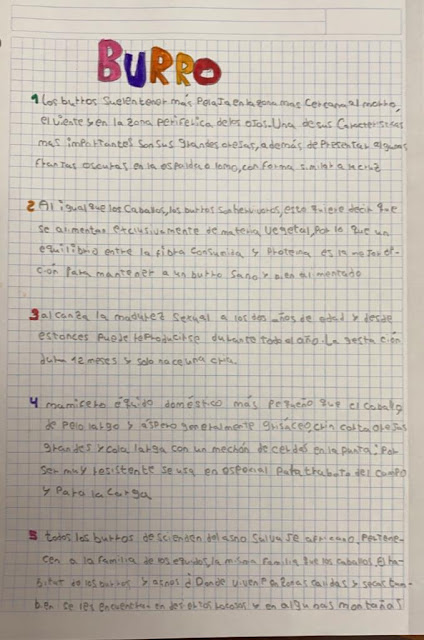 BURRO
1 los burros suelen tener más pelaje en la zona mas cercana al morro,
el vientre y en la zona periferica de los ojos. Una de sus características
mas importantes son sus grandes orejas, además de presentar algunas
franjas oscuras en la espalda o lomo, con forma similar a una cruz
2 Al igual que los caballos, los burros son herbivoros, esto quiere decir que
se alimentan exclusivamente de materia vegetal, por lo que un
equilibrio entre la fibra consumida y proteina es la mejor op-
ción para mantener a un burro sano y bien alimentado
3 alcanza la madurez sexual a los dos años de edad y desde
estonces puede reproducirse durante todo el año. La gestación
dura 12 meses y solo nace una cria.
4 mamifero équido doméstico más pequeño que el caballo,
de pelo largo y áspero generalmente grisáceo, crin corta orejas
grandes y cola larga con un mechón de cerdas en la punta; por
ser muy resistente se usa en especial para trabajo del campo
y para la carga
5 todos los burros descienden del asno salvaje africano, pertene-
cen a la familia de los equidos, la misma familia que los caballos. El ha-
bitat de los burros y asnos ¿Donde viven? en zonas calidas y secas tam-
bien se les encuentran en desiertos rocosos y en algunas montañas